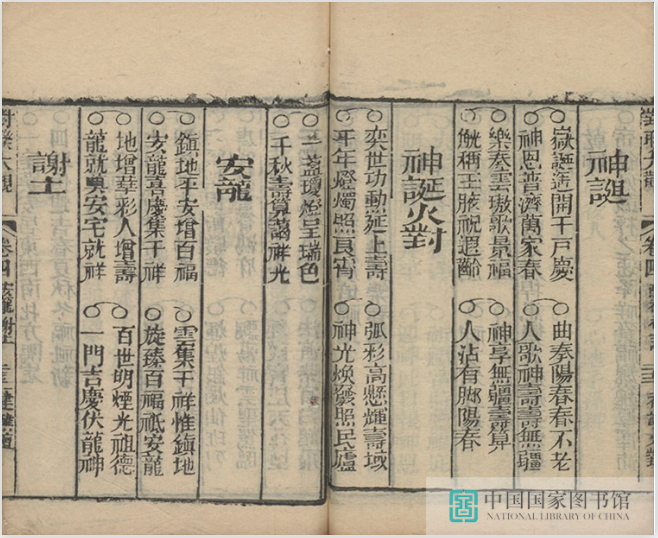 神誕
嶽誕筵開千戶慶 曲奏陽春春不老
神恩普濟萬家春 人歌神壽壽無疆
樂奏雲璈歌景福 神享無疆壽算
觥稱玉 祝遐齡 人沾有腳陽春
神誕火對
奕世功動延上壽 弧彩高懸輝壽域
千年燈燭照良宵 神光煥發照民廬
盞瓊燈呈瑞色
千秋壽算藹祥光
安龍
鎮地平安增百福 雲集千祥惟鎮地
安龍喜慶集千祥 旋臻百福祗安龍
地增華彩人增壽 百世明煙光祖德
龍就奧安宅就祥 一門吉慶伏龍神
謝土
大觀 卷四 安龍謝土
中国国家图书馆
NATIONAL LIBRARY OF CHINA